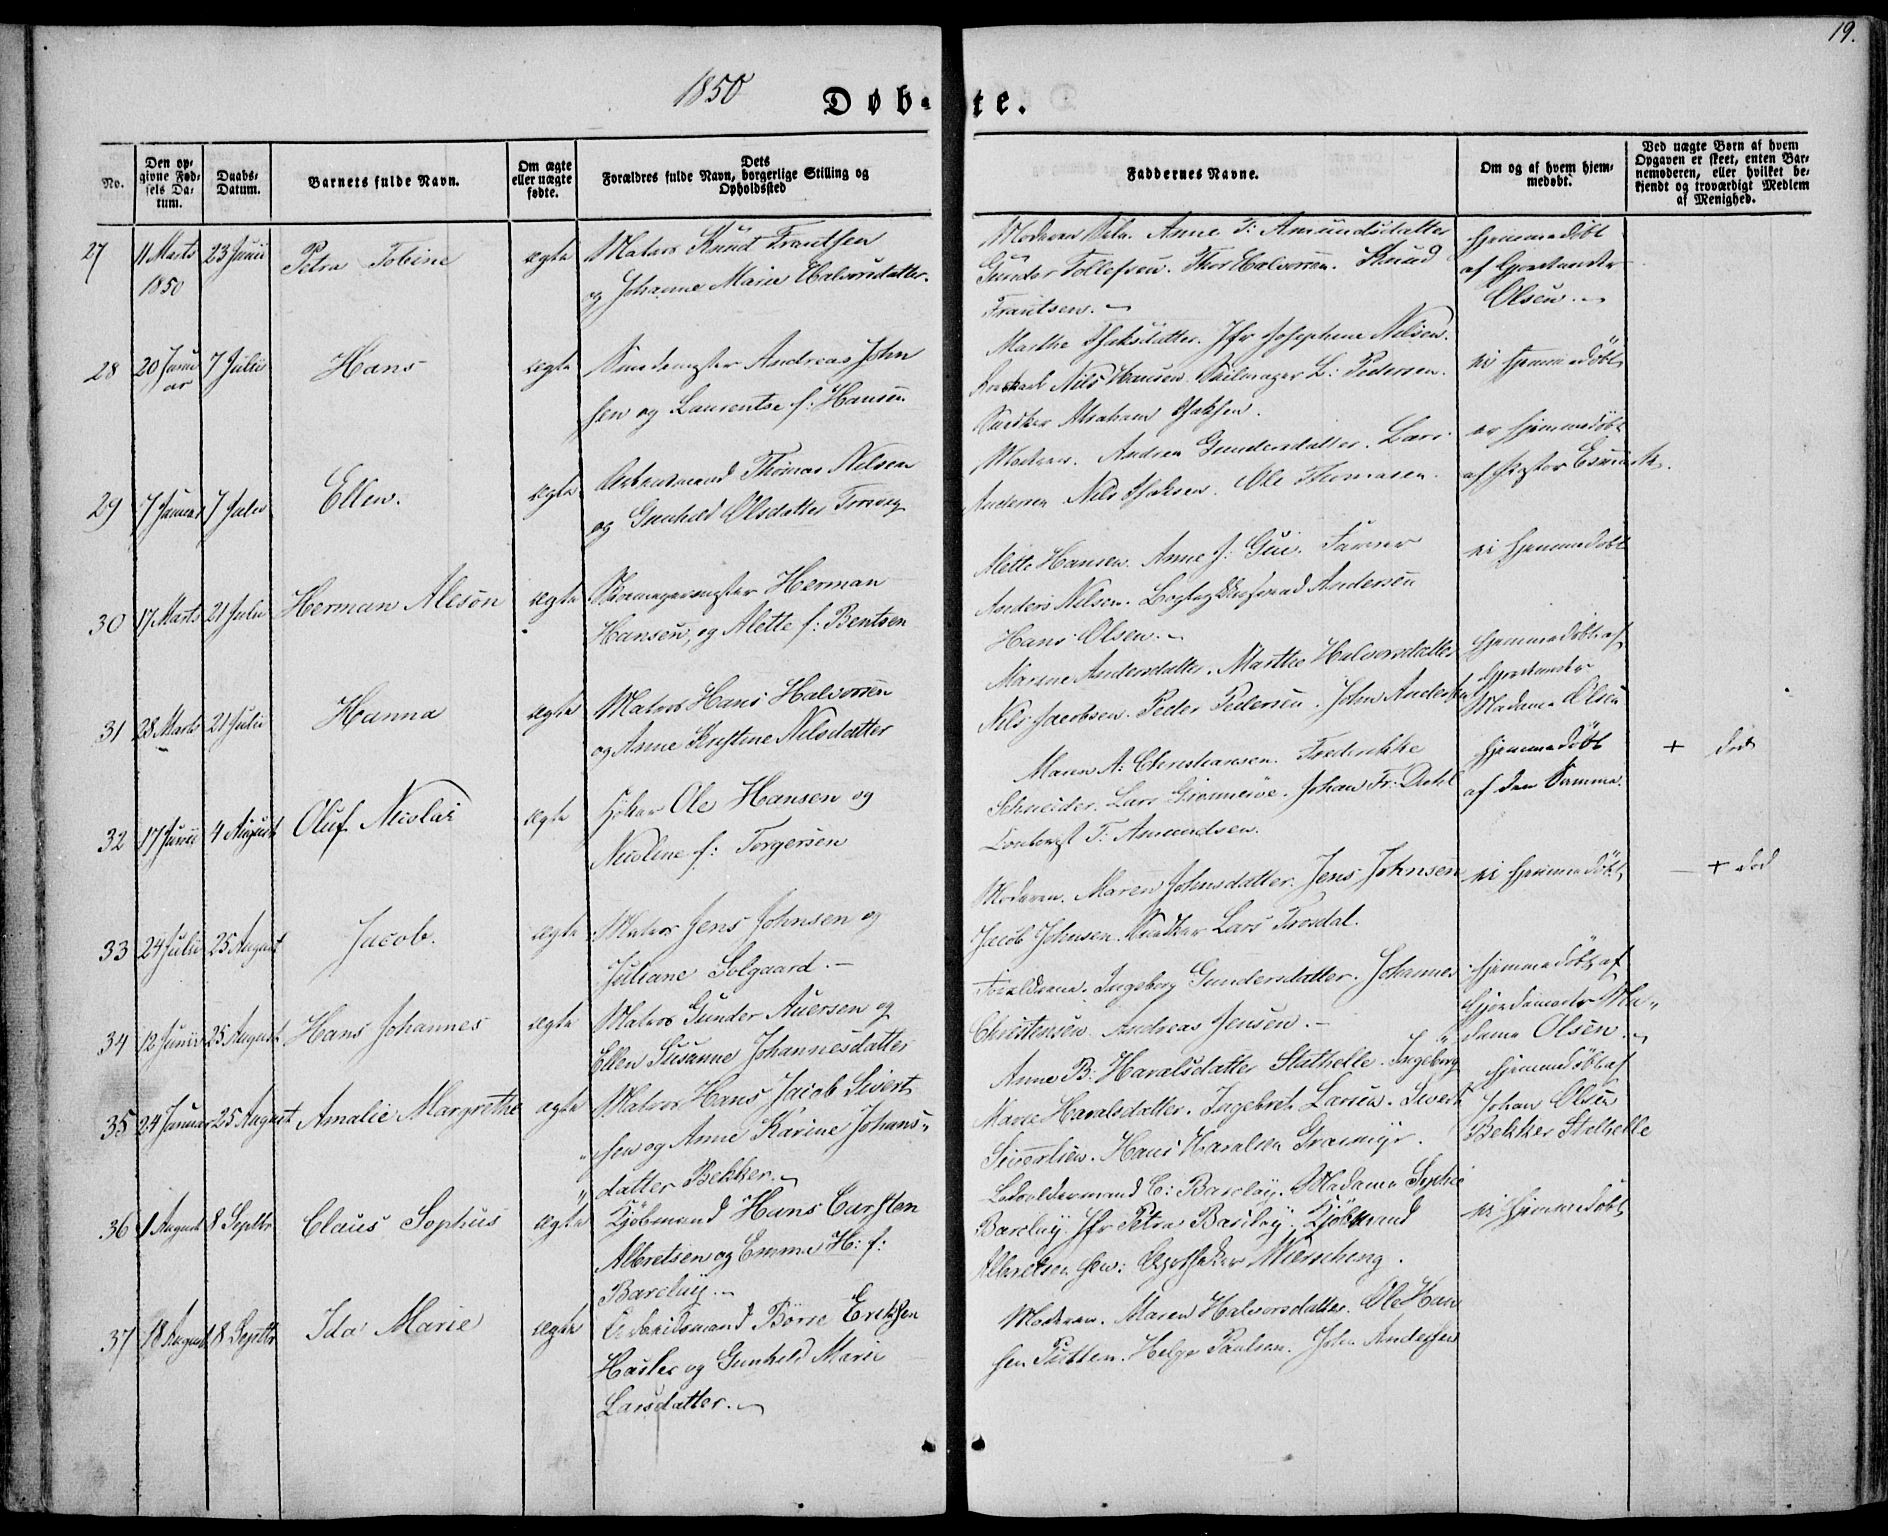 19.
1850
Døb- te.
No.
Den op-
givne Fød-
sels Da-
tum.
Daabs-
Datum.
Barnets fulde Navn.
Om ægte
eller uægte
fødte.
Dets
Forældres fulde Navn, borgerlige Stilling og
Opholdssted
Faddernes Navne.
Om og af hvem hjem-
medøbt.
Ved uægte Børn af hvem
Opgaven er skeet, enten Bar-
nemoderen, eller hvilket be-
kjendt og troværdigt Medlem
af Menighed.
27 11 Marts 23 Junii Petra Tobine ægte Matros Knud Frantsen
1850 og Johanne Marie Halvorsdatter.
Moderen Anne T: Amundsdatter
Gunder Tollefsen. Thor Halvorsen. Knud
Frantsen.
hjemmedøbt
af
Olsen.
28 20 Janu 7 Julii Hans ægte Smedemester Andreas John
ar sen og Laurentse f: Hansen
Marthe Isaksdatter. Jfr Josephine Nilsen.
Nils Hansen. Seilmager L: Pedersen.
Snedker Abraham Isaksen.
ei hjemmedøbt
29 7 Januar 7 Julii Ellen. ægte Arbeidsmand Thomas Nilsen
og Gunhild Olsdatter
Moderen. Andrea Gundersdatter. Lars
Andersen Nils Isaksen. Ole Thomasen.
er hjemmedøbt
af Pastor Esmark.
30 17 Marts 21 Julii Herman Aleson ægte Skomagermester Herman
Hansen, og Alette f: Bentsen
Alette Hansen. Anne f: Farver
Anders Nilsen. Andersen
Hans Olsen.
ei hjemmedøbt
31 28 Marts 21 Julii Hanna ægte Matros Hans Halvorsen
og Anne Kristine Nilsdatter
Marene Andersdatter. Marthe Halvorsdatter
Nils Jacobsen. Peder Pedersen. John Andersen
hjemmedøbt af
Madame Olsen
32 17 Junii 4 August Oluf Nicolai ægte Høker Ole Hansen og
Nicoline f: Torgersen
Maren A: Christiansen. Frederikke
Schneider. Lars Johan Fr: Dahl
T: Amundsen.
hjemmedøbt
af den Samme.
+ død
33 24 Julii 25 August Jacob. ægte Matros Jens Johnsen og
Juliane Solgaard.
Moderen. Maren Johnsdatter. Jens Johnsen
Jacob Johnsen. Snedker Lars Frosdal.
ei hjemmedøbt
+ død
34 12 Junii 25 August Hans Johannes ægte Matros Gunder Auersen og
Ellen Susanne Johannesdatter
Forældrene. Ingeborg Gundersdatter. Johannes
Christensen. Andreas Jensen.
hjemmedøbt af
Gjordemoder Ma-
dame Olsen.
35 24 Januar 25 August Amalie Margrethe ægte Matros Hans Jacob Sivert
sen og Anne Karine Johans-
datter Bekker.
Anne B: Haralsdatter Stathelle. Ingeborg
Marie Haralsdatter. Ingebret Larsen. Sivert
Sivertsen. Hans Haralsen Grasmyr.
hjemmedøbt af
Johan Olsen
Bekker Stathelle
36 1 August 8 Septbr Claus Sophus ægte Kjøbmand Hans Carsten
Albretsen og Emma H: f:
Barclay.
Lodsoldermand C: Barclay. Madame Sophie
Barclay. Jfr Petra Barclay. Kjøbmand
Albretsen Apotheker
ei hjemmedøbt
37 18 August 8 Septbr Ida Marie ægte Arbeidsmand Börre Eriksen
Hasler og Gunhild Marie
Larsdatter.
Moderen. Maren Halvorsdatter. Ole Han
sen Helge Paulsen. John Andersen